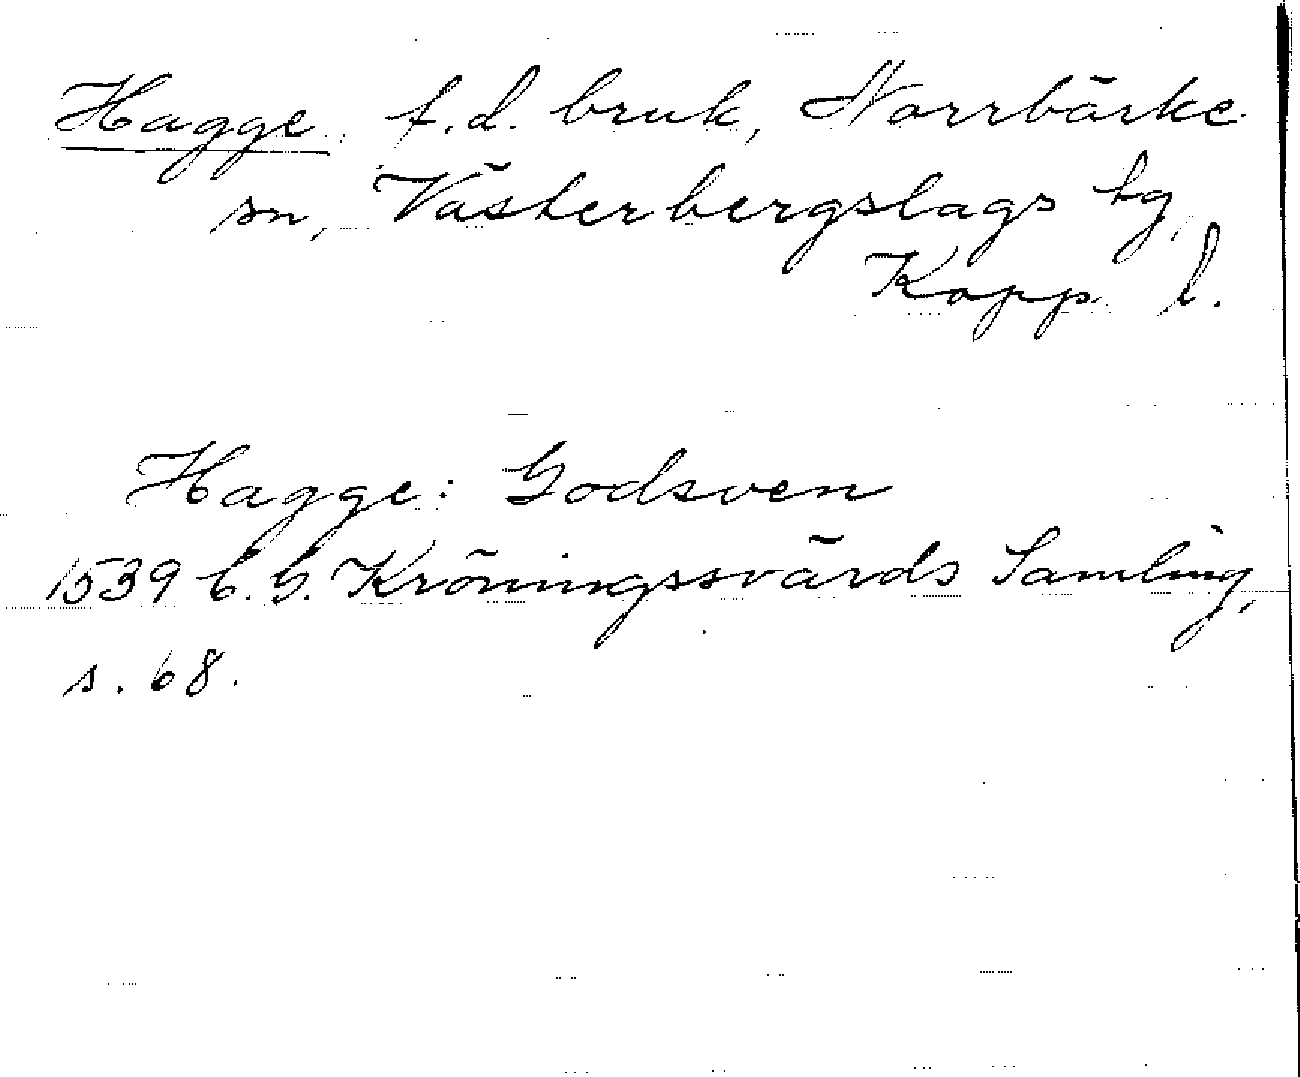 Hagge f.d. bruk, Norrbärke
sn, Västerbergslags tg,
Kopp. l.
Hagge: Godsven
1539 C.G. Kröningssvärds Samling,
s. 68.